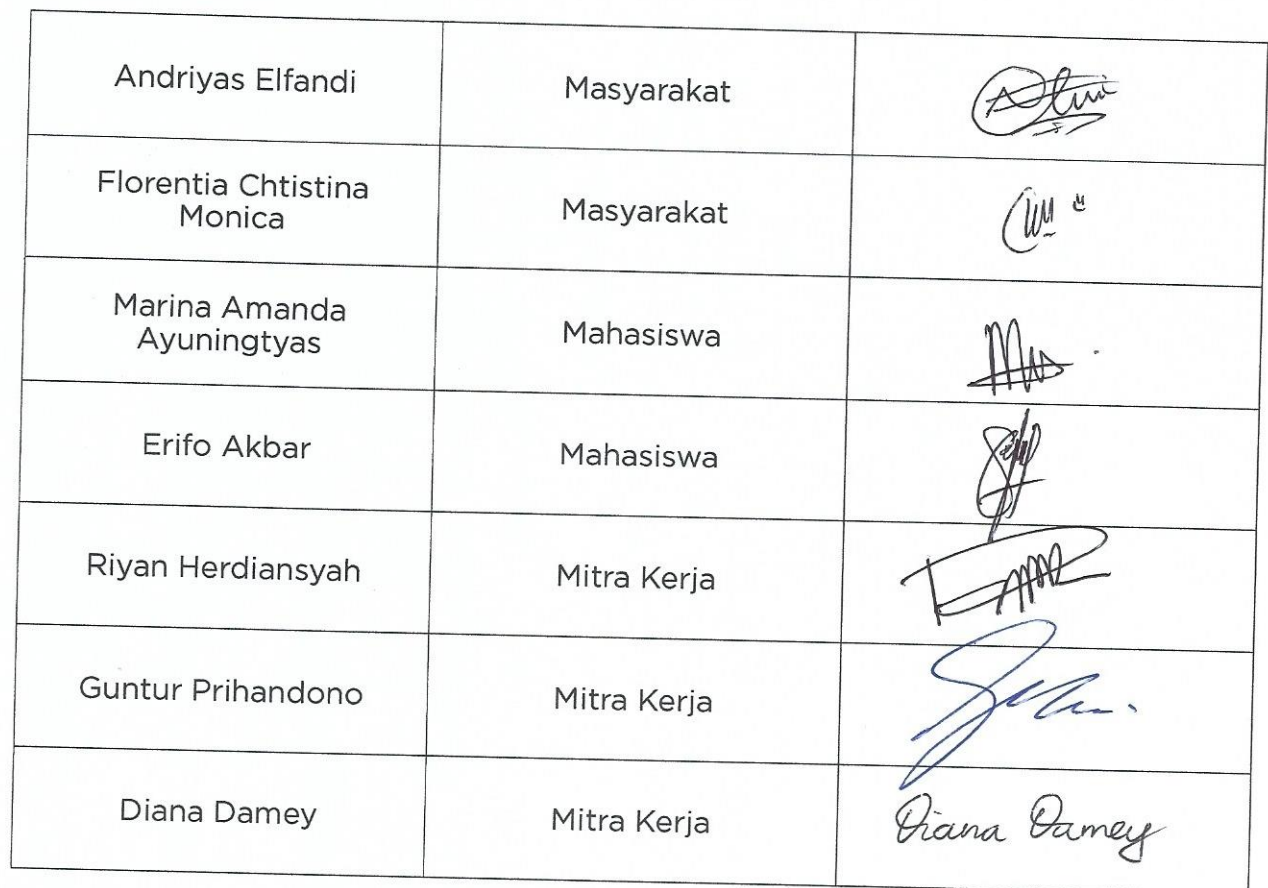 Andriyas Elfandi
Masyarakat
Florentia Chtistina
Monica
Masyarakat
Marina Amanda
Ayuningtyas
Mahasiswa
Erifo Akbar
Mahasiswa
Riyan Herdiansyah
Mitra Kerja
Guntur Prihandono
Mitra Kerja
Diana Damey
Mitra Kerja
Diana Damey